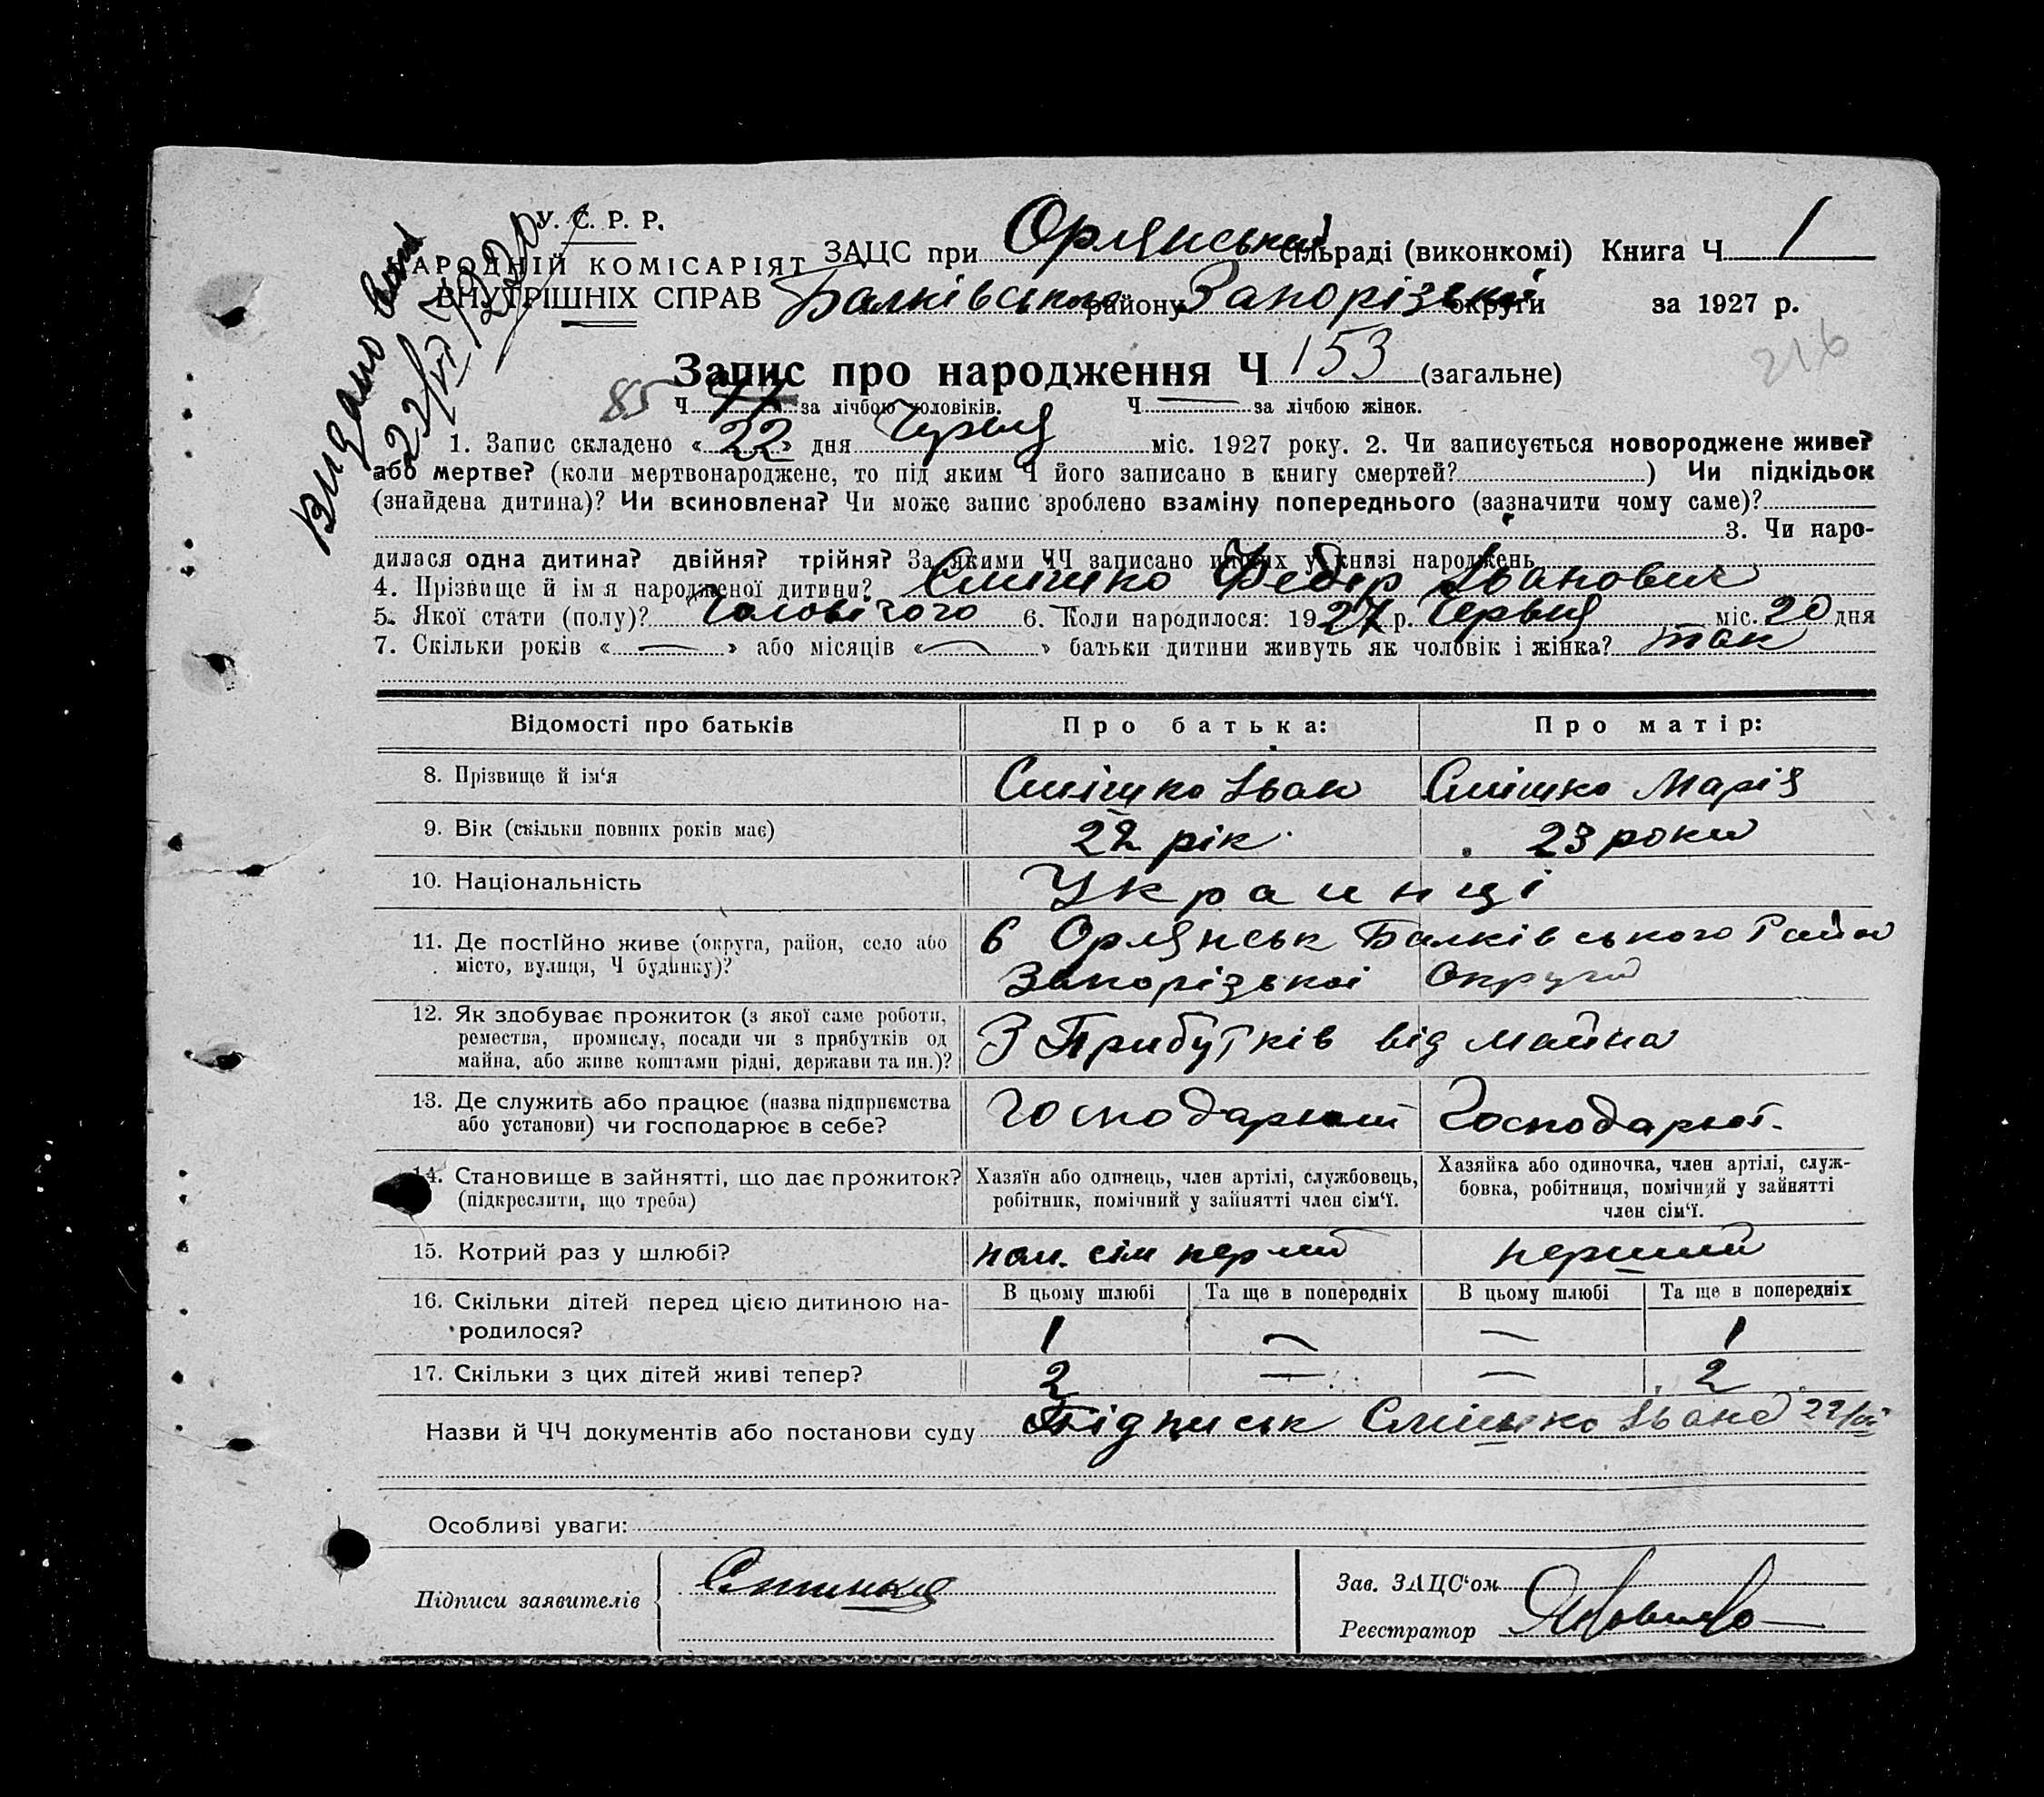 У. С. Р. Р.
НАРОДНІЙ КОМІСАРІЯТ
ВНУТРІШНІХ СПРАВ
ЗАЦС при Орлянській сільраді (виконкомі) Книга Ч 1
Балківського району Запорізької округи за 1927 р.
Видано
216
Запис про народження Ч 153 (загальне)
85 Ч 77 за лічбою чоловіків. Ч — за лічбою жінок.
1. Запис складено «22» дня Червня міс. 1927 року. 2. Чи записується новороджене живе?
або мертве? (коли мертвонароджене, то під яким Ч його записано в книгу смертей? ) Чи підкідьок
(знайдена дитина)? Чи всиновлена? Чи може запис зроблено взаміну попереднього (зазначити чому саме)?
3. Чи наро-
дилася одна дитина? двійня? трійня? За якими ЧЧ записано инших у книзі народжень
4. Прізвище й ім я народженої дитини? Смішко Федір Іванович
5. Якої стати (полу)? Чоловічого 6. Коли народилося: 1927 р. Червня міс. 20 дня
7. Скільки років «—» або місяців «—» батьки дитини живуть як чоловік і жінка? так
Відомості про батьків Про батька: Про матір:
8. Прізвище й ім‘я Смішко Іван Смішко Марія
9. Вік (скільки повних років має) 22 рік 23 роки
10. Національність Украинці
11. Де постійно живе (округа, район, село або Орлянськ Балківського Район
місто, вулиця, Ч будинку)? Запорізькоі Округи
12. Як здобуває прожиток (з якої саме роботи,
ремества, промислу, посади чи з прибутків од З Прибутків від майна
майна, або живе коштами рідні, держави та ин.)?
13. Де служить або працює (назва підприємства
або установи) чи господарює в себе? Господарюют.
14. Становище в зайнятті, що дає прожиток? Хазяїн або одинець, член артілі, службовець, Хазяйка або одиночка, член артілі, служ-
(підкреслити, що треба) робітник, помічний у зайнятті член сім‘ї. бовка, робітниця, помічний у зайнятті
член сім‘ї.
15. Котрий раз у шлюбі? пом. сім перший перший
16. Скільки дітей перед цією дитиною на- В цьому шлюбі Та ще в попередніх В цьому шлюбі Та ще в попередніх
родилося? 1 — — 1
17. Скільки з цих дітей живі тепер? 2 — — 2
Назви й ЧЧ документів або постанови суду Підписк Смішко Івана
Особливі уваги:
Підписи заявителів
Зав. ЗАЦС‘ом
Реєстратор